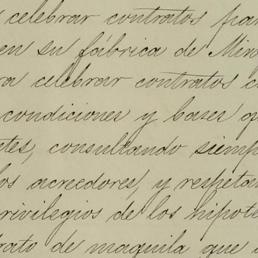 celebrar contratos par
en su fábrica de Min
ra celebrar contratos c
condiciones y bases q
tes, consultando siemp
os acreedores, y respeta
rivilegios de los hipote
rato de maquila que